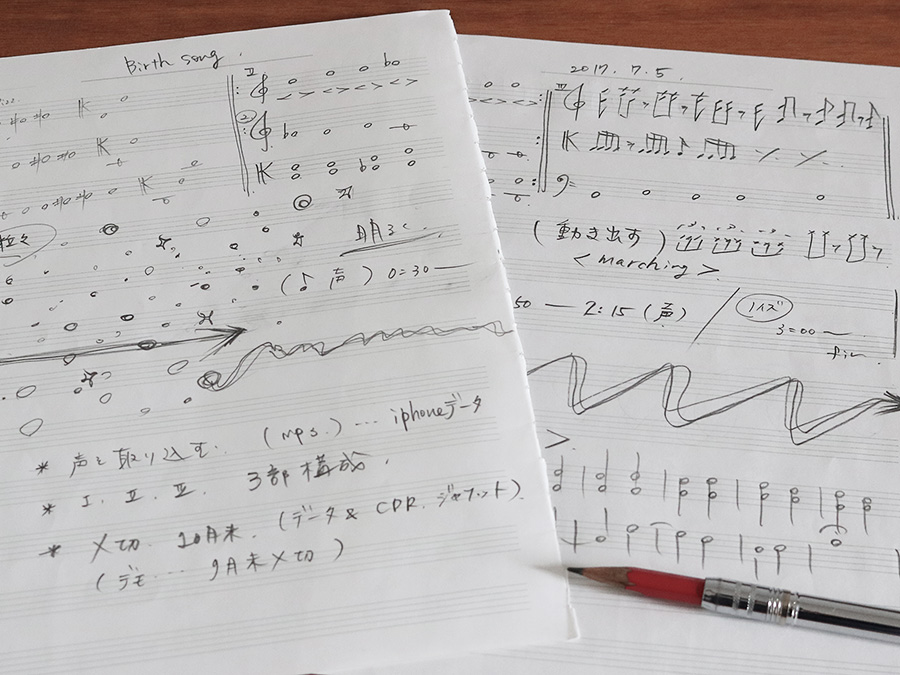 Birth song.
II
明るく
(♪ 声) 0:30 —
* 声を取り込む. (mp3.) … iphoneデータ
* I. II. III. 3部構成.
* 〆切. 10月末. (データ & CDR. ジャケット).
(デモ … 9月末〆切)
2017. 7. 5.
III
(動き出す)
< marching >
50 — 2:15 (声)
ノイズ
3=00 —
fin